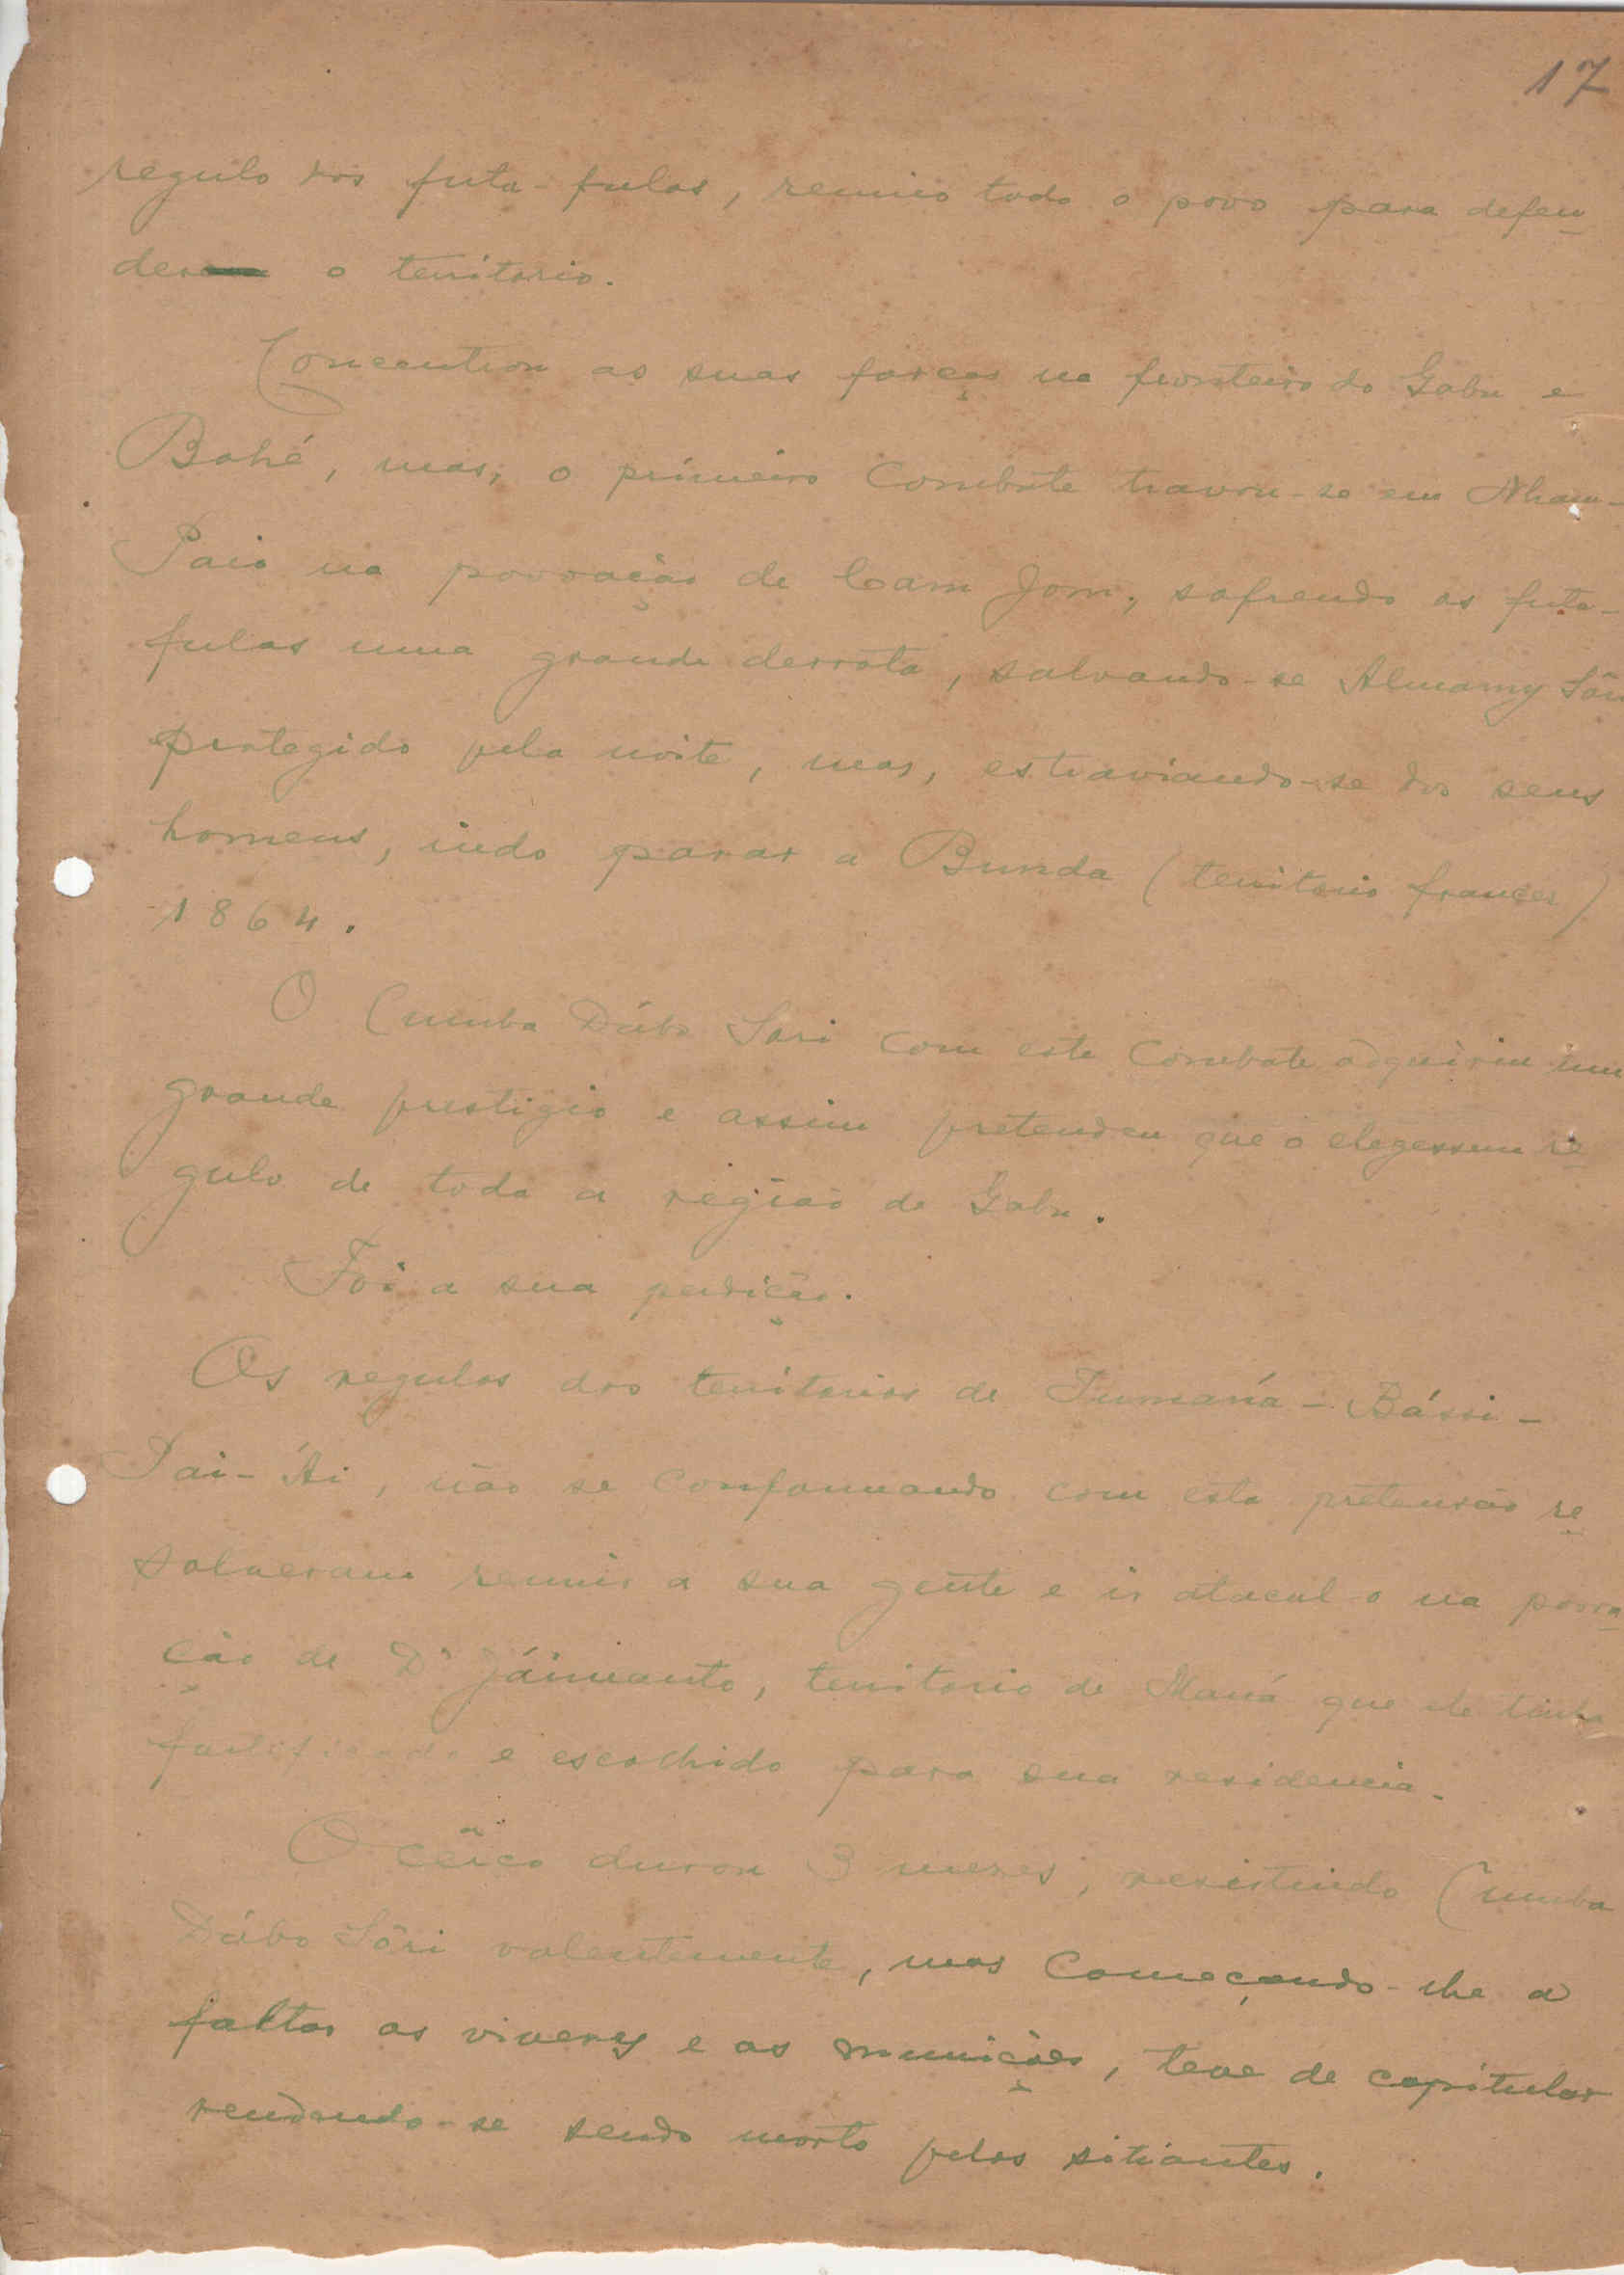 17
regulo dos futa-fulas, reuniu todo o povo para defen
der o territorio.
Concentrou as suas forças na fronteira do Gabu e
Bohé, mas, o primeiro combate travou-se em Nham-
Paio na povoação de Cam Jom, sofrendo os futa-
fulas uma grande derrota, salvando-se Almamy Sôri
protegido pela noite, mas, estraviando-se dos seus
homens, indo parar a Bunda (territorio francês)
1864.
O Cumba Dábo Sori com este combate adquiriu um
grande prestigio e assim pretendeu que o elegessem re
gulo de toda a região de Gabu.
Foi a sua perdição.
Os regulos dos territorios de Tumaná - Bássi -
Pai-Ái, não se conformando com esta pretensão re
solveram reunir a sua gente e ir atacal-o na povoa
ção de D' Jáimanto, territorio de Maná que ele tinha
fortificado e escolhido para sua residencia.
O cêrco durou 3 meses, resistindo Cumba
Dábo Sôri valentemente, mas começando-lhe a
faltar os viveres e as munições, teve de capitular
rendendo-se sendo morto pelos sitiantes.